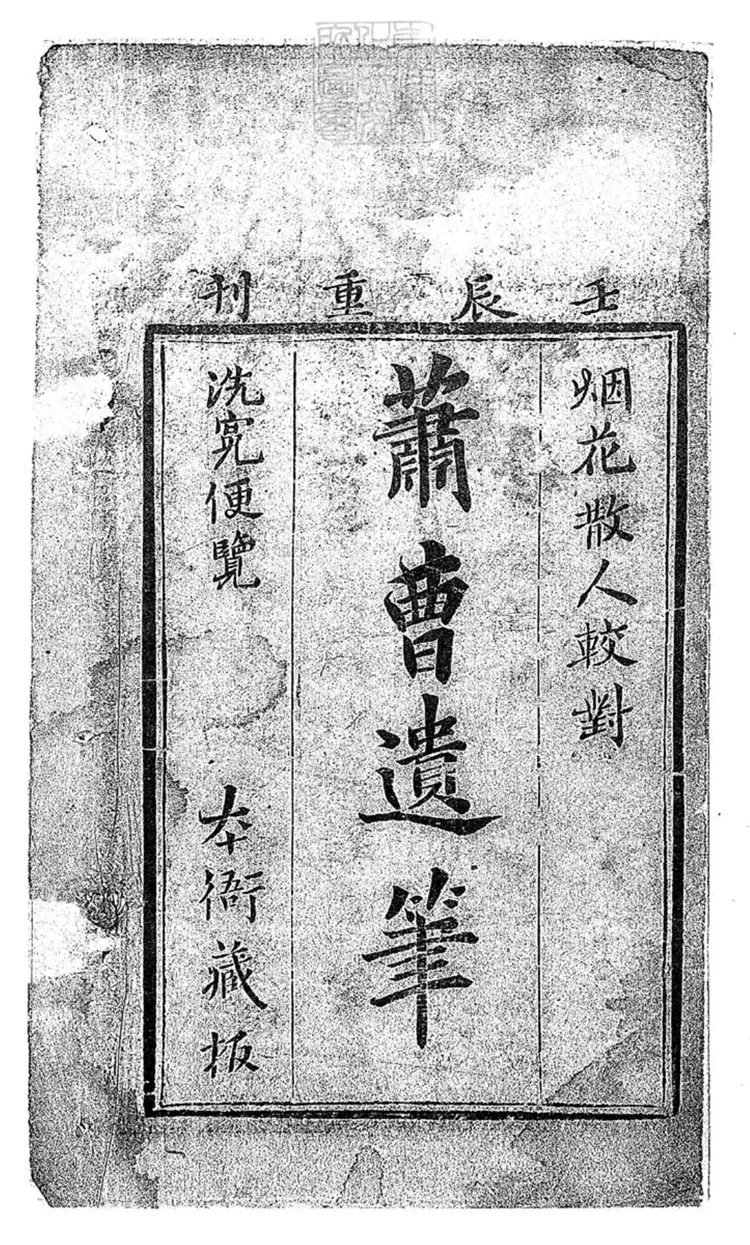 壬辰重刊
烟花散人較對
蕭曹遺筆
洗冤便覽
本衙藏板